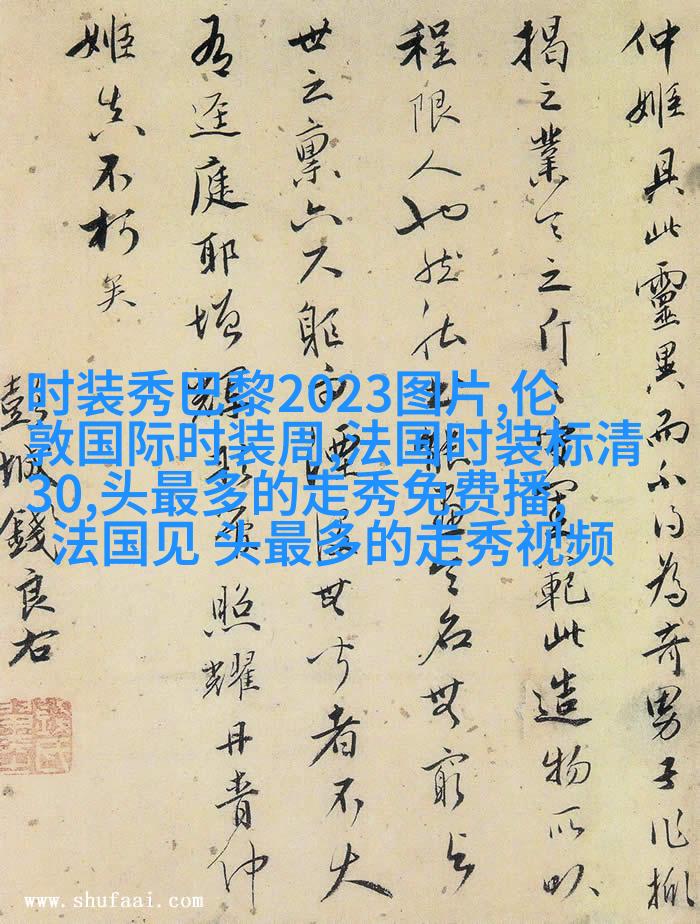 仲姬具此靈異而不得為奇男子作掀
揭之業天之斤 範此造物所以
程限人也然 名無窮與
世之稟六尺軀 湮沒無聞者不大
有逕庭耶增輝 照耀丹青仲
姬真不朽矣
彭城錢良右
时装秀巴黎2023图片,伦
敦国际时装周,法国时装标清
30,头最多的走秀免费播,
法国见 头最多的走秀视频
www.shufaai.com